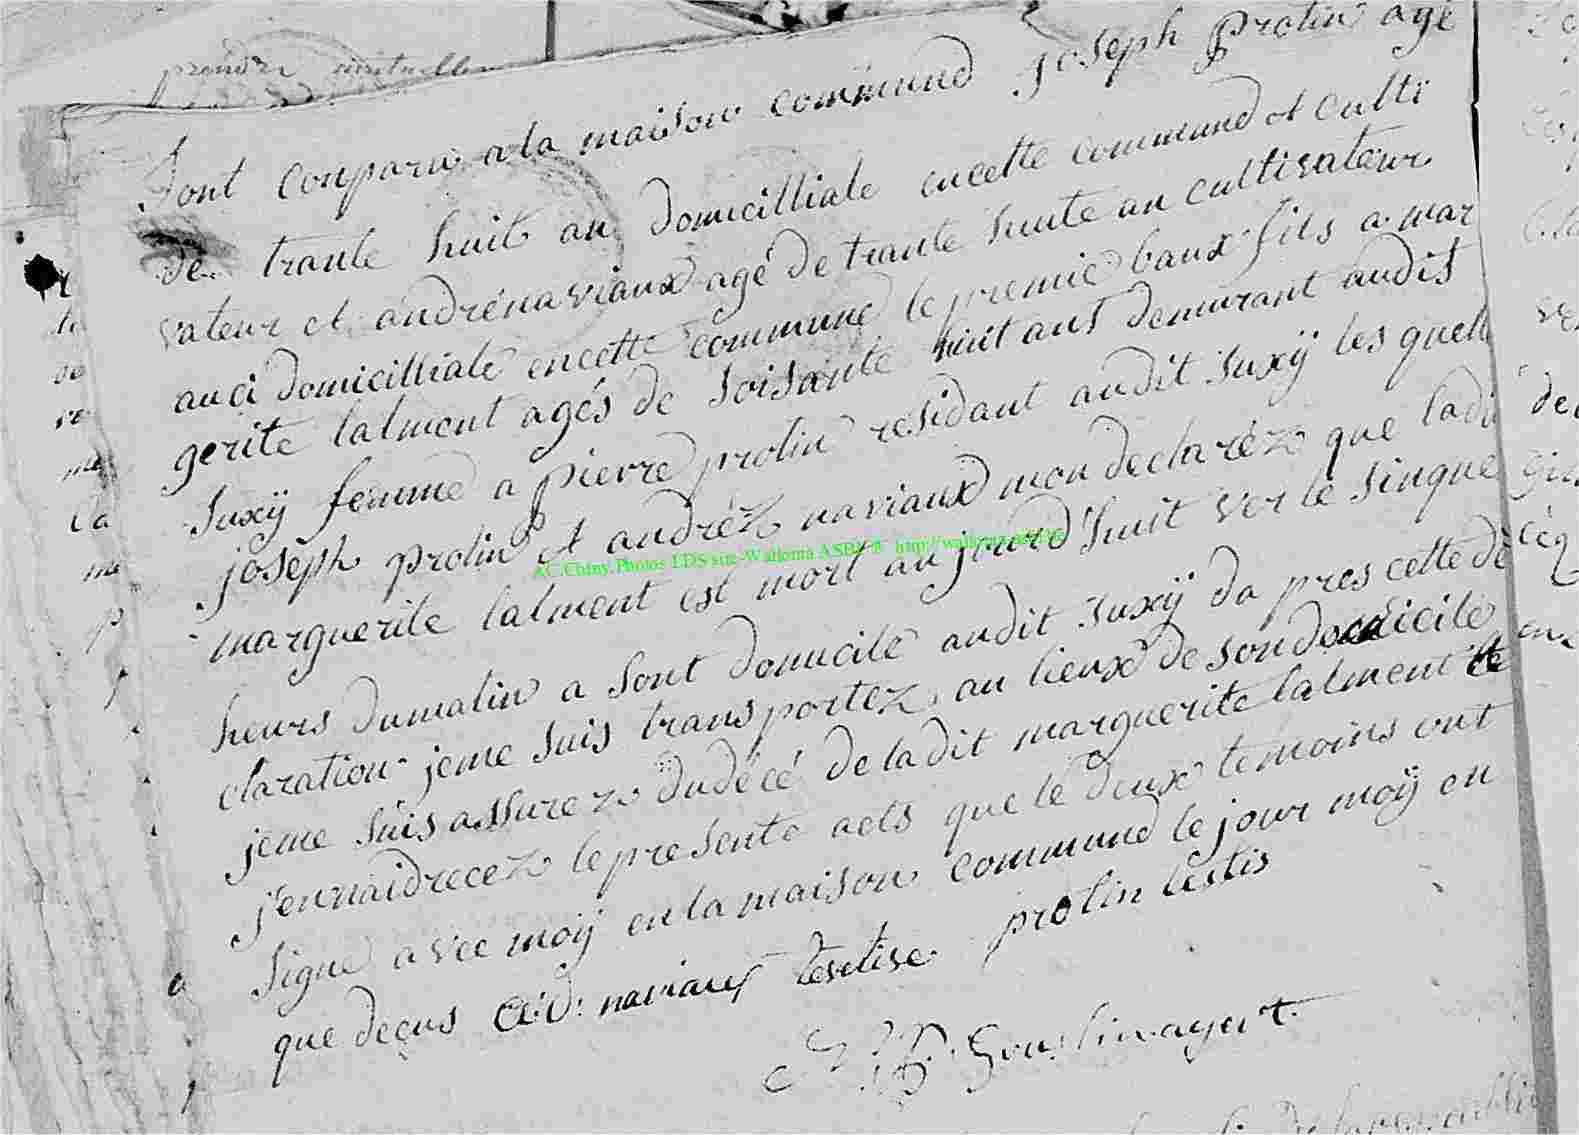 prendre mutuellem
Sont conparu a la maison commune joseph protin agé
de trante huit an domicilliale en cette commune et culti
vateur et andré naviaux agé de trante huite an cultivateur
auci domicilliale en cette commune le premie baux fils a mar
gerite lalment agés de soisante huit ans demurant audit
Suxÿ femme a pierre protin residant audit Suxÿ les quell
joseph protin et andréz naviaux mon declaréz que ladi
marguerite lalment est mort aujourd'huit ver le sinque
heurs du matin a sont domicile audit Suxÿ da pres cette de
claration je me suis transportez au lieux de son domicile
je me suis assurez du décé de ladit marguerite lalment et
j'en nai drecez le presente acts que le deux temoins ont
signe avec moÿ en la maison commune le jour moÿ en
que decus naviaux testise protin testis
AC.Chiny.Photos LDS sur Wallonia ASBL © http://wallonia.